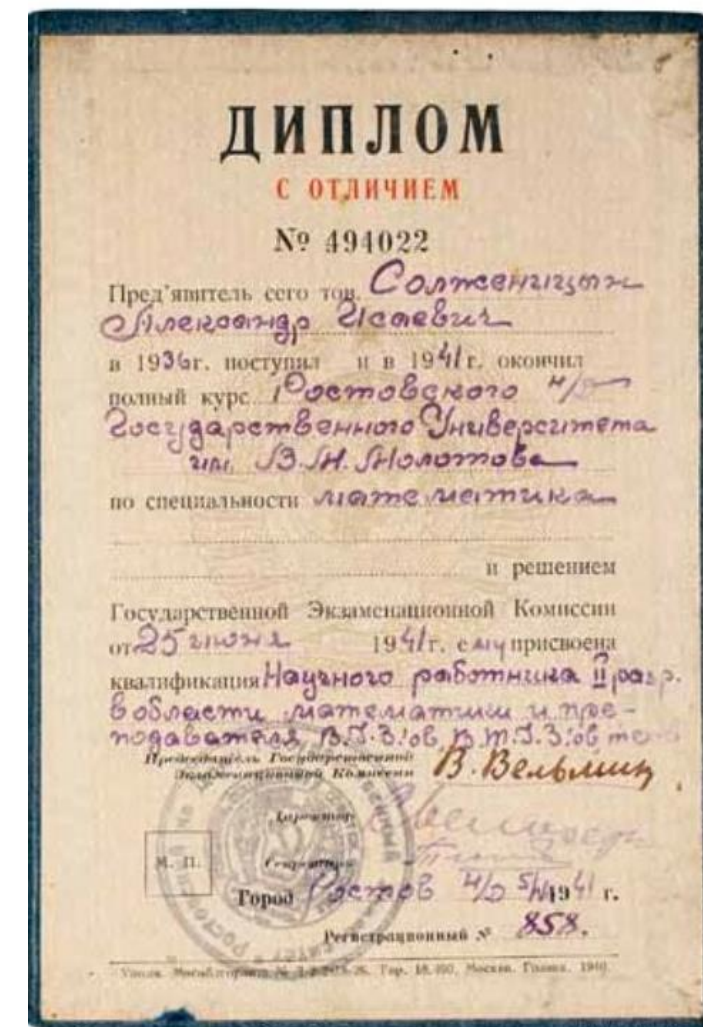 ДИПЛОМ
С ОТЛИЧИЕМ
№ 494022
Пред'явитель сего тов. Солженицын
Александр Исаевич
в 1936г. поступил и в 1941г. окончил
полный курс Ростовского н/Д
Государственного Университета
им. В. М. Молотова
по специальности математика
и решением
Государственной Экзаменационной Комиссии
от 25 июня 1941г. ему присвоена
квалификация Научного работника II разр.
в области математики и пре-
подавателя В.У.З.'ов, В.Т.У.З.'ов
Председатель Государственной
Экзаменационной Комиссии В. Вельмин
Директор
Секретарь
М. П.
Город Ростов н/Д 1941 г.
Регистрационный № 858.